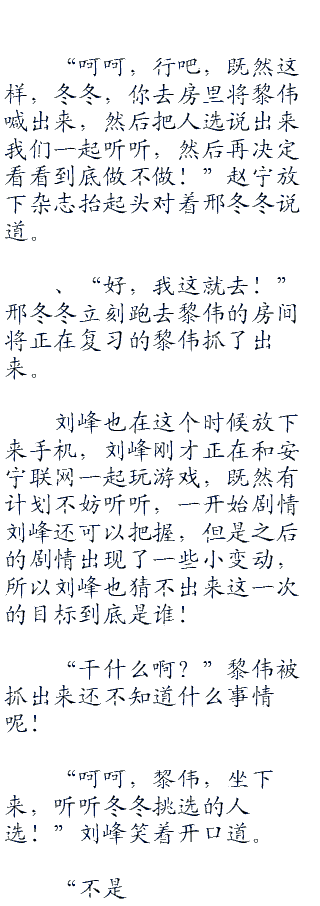 “呵呵，行吧，既然这
样，冬冬，你去房里将黎伟
喊出来，然后把人选说出来
我们一起听听，然后再决定
看看到底做不做！”赵宁放
下杂志抬起头对着邢冬冬说
道。
、“好，我这就去！”
邢冬冬立刻跑去黎伟的房间
将正在复习的黎伟抓了出
来。
刘峰也在这个时候放下
来手机，刘峰刚才正在和安
宁联网一起玩游戏，既然有
计划不妨听听，一开始剧情
刘峰还可以把握，但是之后
的剧情出现了一些小变动，
所以刘峰也猜不出来这一次
的目标到底是谁！
“干什么啊？”黎伟被
抓出来还不知道什么事情
呢！
“呵呵，黎伟，坐下
来，听听冬冬挑选的人
选！”刘峰笑着开口道。
“不是